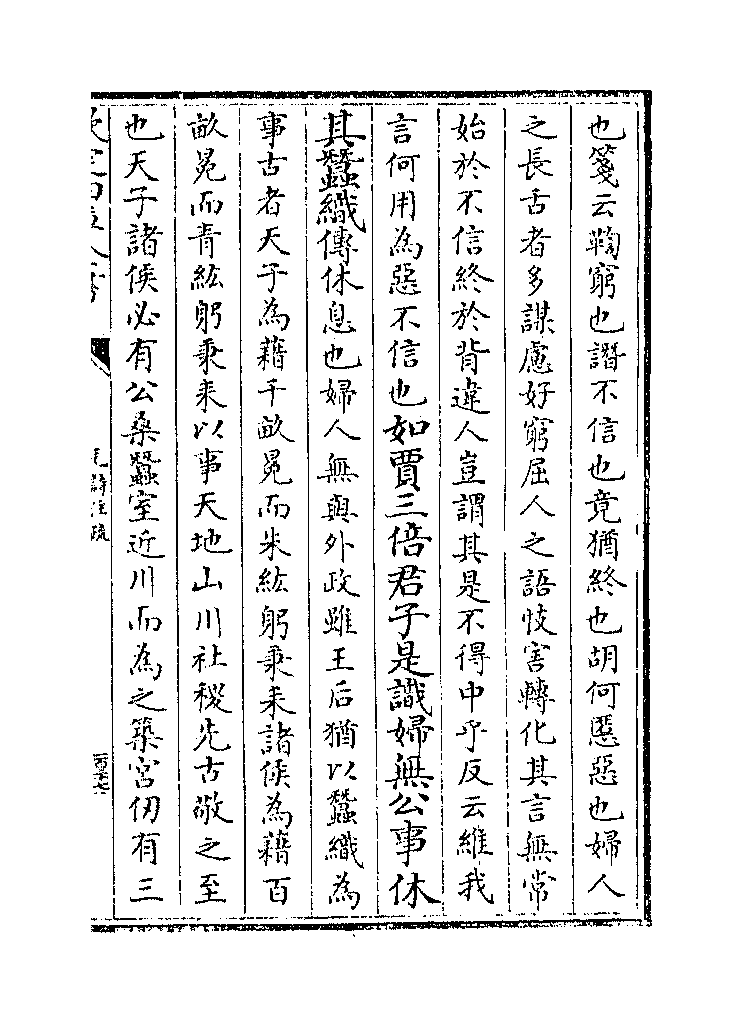 也箋云鞫窮也譖不信也竟猶終也胡何慝惡也婦人
之長舌者多謀慮好窮屈人之語忮害轉化其言無常
始於不信終於背違人豈謂其是不得中乎反云維我
言何用為惡不信也如賈三倍君子是識婦無公事休
其蠶織傳休息也婦人無與外政雖王后猶以蠶織為
事古者天子為藉千畝冕而朱紘躬秉耒諸侯為藉百
畝冕而青紘躬秉耒以事天地山川社稷先古敬之至
也天子諸侯必有公桑蠶室近川而為之築宮仞有三
毛詩注疏